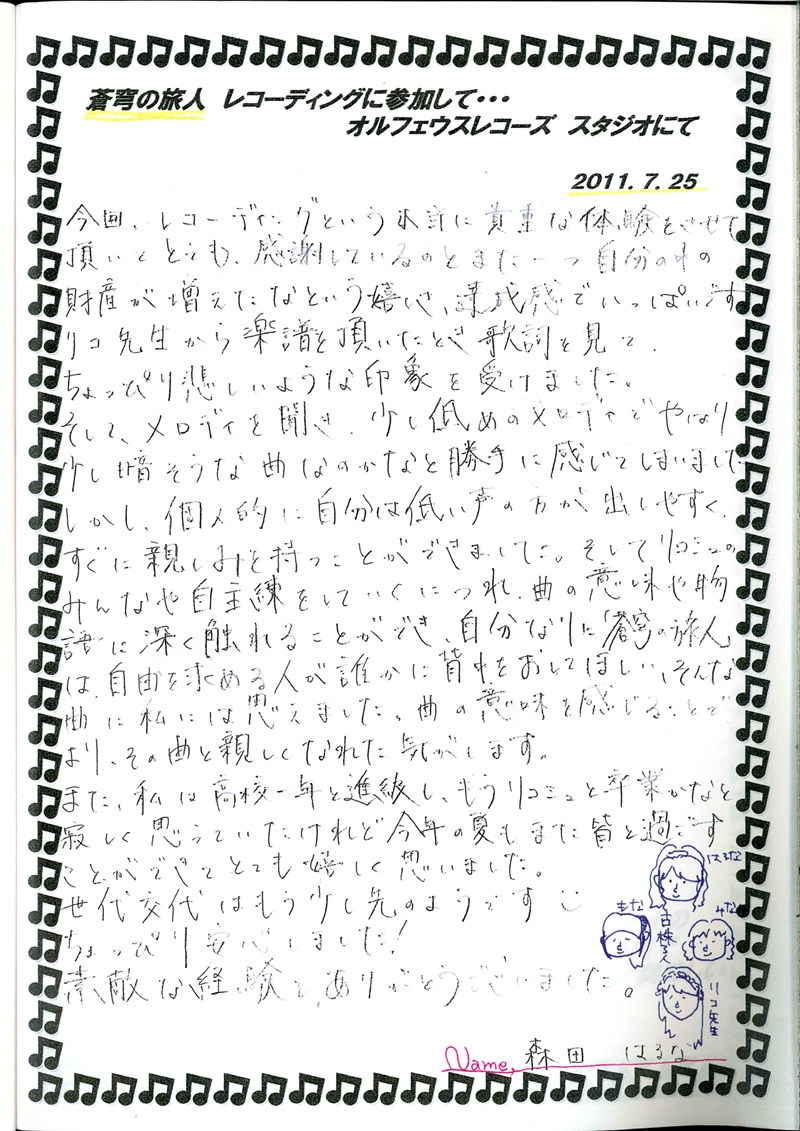 蒼穹の旅人 レコーディングに参加して・・・
オルフェウスレコーズ スタジオにて
2011. 7. 25
今回、レコーディングという本当に貴重な体験をさせて
頂いてとても、感謝しているのとまた一つ自分の中の
財産が増えたなという嬉しさ、達成感でいっぱいです
リコ先生から楽譜を頂いたとき歌詞を見て、
ちょっぴり悲しいような印象を受けました。
そして、メロディを聞き、少し低めのメロディでやはり
少し暗そうな曲なのかなと勝手に感じてしまいました
しかし、個人的に自分は低い声の方が出しやすく、
すぐに親しみを持つことができました。そしてリコミュの
みんなや自主練をしていくにつれ、曲の意味や物
語に深く触れることができ、自分なりに「蒼穹の旅人」
は、自由を求める人が誰かに背中をおしてほしい、そんな
曲に私には思えました。曲の意味を感じることで
より、その曲と親しくなれた気がします。
また、私は高校一年と進級し、もうリコミュと卒業かなと
寂しく思っていたけれど今年の夏もまた皆と過ごす
ことができてとても嬉しく思いました。
世代交代はもう少し先のようです
ちょっぴり安心しました!
素敵な経験をありがとうございました。
はるな
もな
みな
古株3人
リコ先生
Name, 森田 はるな